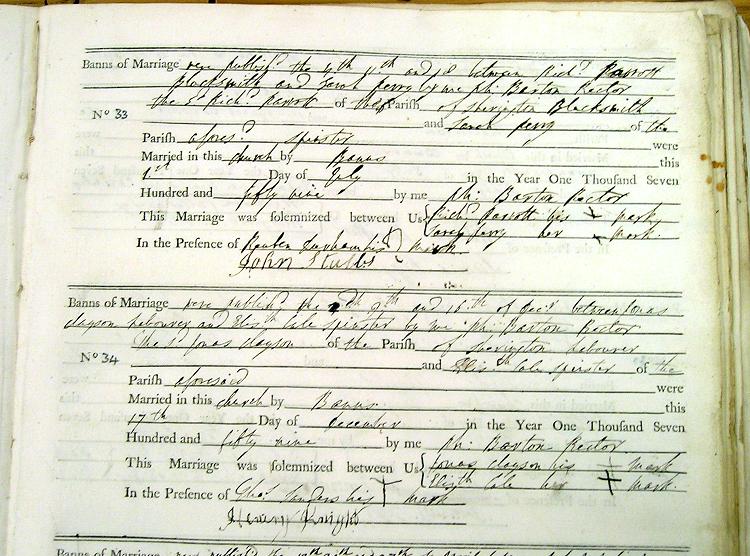 Banns of Marriage were publish'd the 4th 11th and 18 between Rich'd Parrott
Blacksmith and Sarah Perry by me Phi: Barton Rector
Nº 33 the s'd Rich'd Parrott of the Parish of Sherington Blacksmith
and Sarah Perry of the
Parish afores'd spinster were
Married in this Church by Banns this
1st Day of July in the Year One Thousand Seven
Hundred and fifty nine by me Phi: Barton Rector
This Marriage was solemnized between Us Rich'd Parrott his + mark
Sarah Perry her + mark
In the Presence of Reuben his mark
John Stubbs
Banns of Marriage were publish'd the 9th and 16th of Dec'r between Jonas
Clayson Labourer and Elis'th Cole spinster by me Phi: Barton Rector
The s'd Jonas Clayson of the Parish of Sherington Labourer
Nº 34 and Elis'th Cole spinster of the
Parish aforesaid were
Married in this Church by Banns this
17th Day of December in the Year One Thousand Seven
Hundred and fifty nine by me Phi: Barton Rector
This Marriage was solemnized between Us Jonas Clayson his + mark
Elis'th Cole her + mark
In the Presence of Tho's Sanders his + mark
Henry Knight
Banns of Marriage were publish'd the